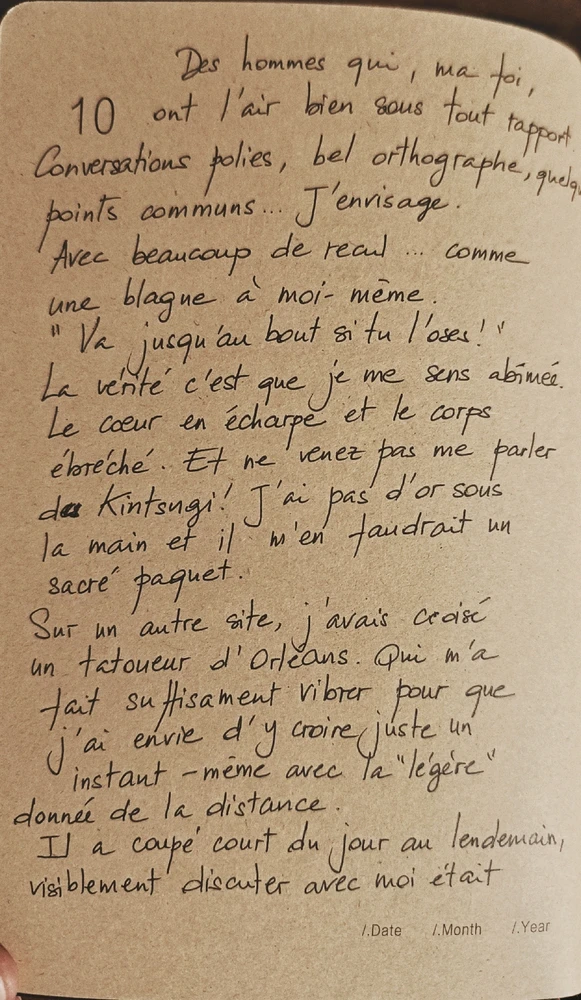 Des hommes qui, ma foi,
10 ont l'air bien sous tout rapport.
Conversations polies, bel orthographe, quelqu
points communs... J'envisage.
Avec beaucoup de recul... comme
une blague à moi-même.
"Va jusqu'au bout si tu l'oses!"
La vérité c'est que je me sens abîmée.
Le cœur en écharpe et le corps
ébréché. Et ne venez pas me parler
du Kintsugi! J'ai pas d'or sous
la main et il m'en faudrait un
sacré paquet.
Sur un autre site, j'avais croisé
un tatoueur d'Orléans. Qui m'a
fait suffisament vibrer pour que
j'ai envie d'y croire, juste un
instant - même avec la "légère"
donnée de la distance.
Il a coupé court du jour au lendemain,
visiblement discuter avec moi était
/.Date /.Month /.Year